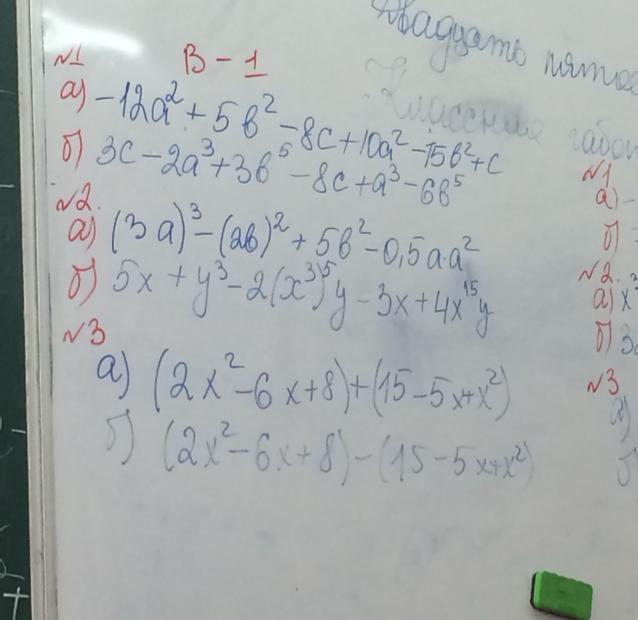 Двадцать пятое
Классная работ
В - 1
№1
а) -12a² + 5b² - 8c + 10a² - 15b² + c
б) 3c - 2a³ + 3b⁵ - 8c + a³ - 6b⁵
№2.
а) (3a)³ - (2b)² + 5b² - 0,5a·a²
б) 5x + y³ - 2(x³)⁵y - 3x + 4x¹⁵y
№3
а) (2x² - 6x + 8) + (15 - 5x + x²)
б) (2x² - 6x + 8) - (15 - 5x + x²)
№1
а) -
б)
№2.
а) x³
б) 3
№3
а)
б